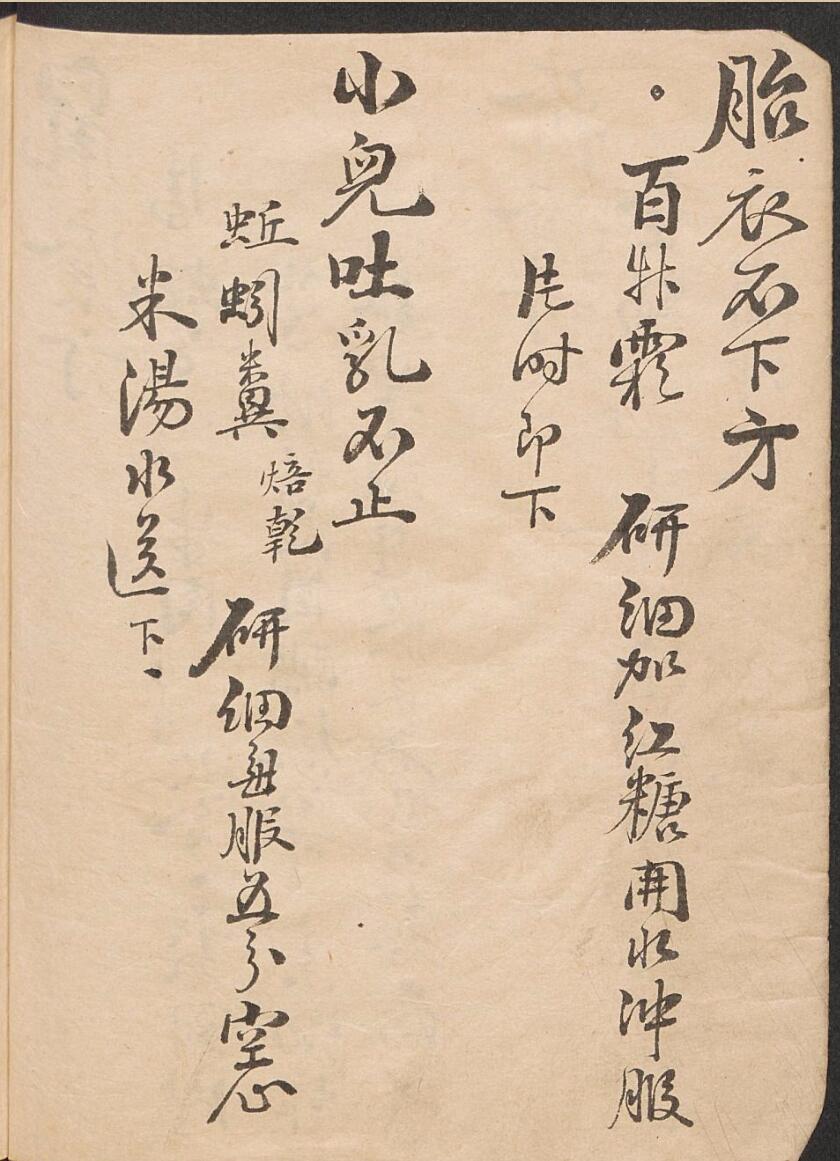 胎衣不下方
。百草霜 研細加紅糖開水沖服
片时即下
小兒吐乳不止
蚯蚓糞 焙乾 研細每服五分空心
米湯水送下